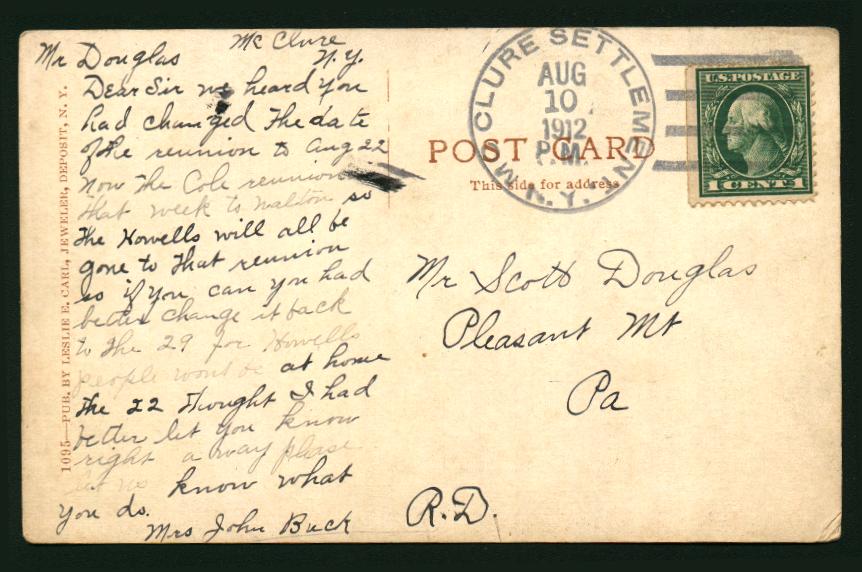 Mc Clure
N.Y.
Mr Douglas
Dear Sir we heard you
had changed the date
of the reunion to Aug 22
now the Cole reunion
that week to Walton so
the Howells will all be
gone to that reunion
so if you can you had
better change it back
to the 29 for Howells
people wont be at home
the 22 thought I had
better let you know
right away please
let us know what
you do.
Mrs John Buck
1095—PUB. BY LESLIE E. CARL, JEWELER, DEPOSIT, N. Y.
McCLURE SETTLEMENT
AUG
10
1912
P.M.
N.Y.
U.S. POSTAGE
1 CENT 1
POST CARD
This side for address
Mr Scott Douglas
Pleasant Mt
Pa
R.D.